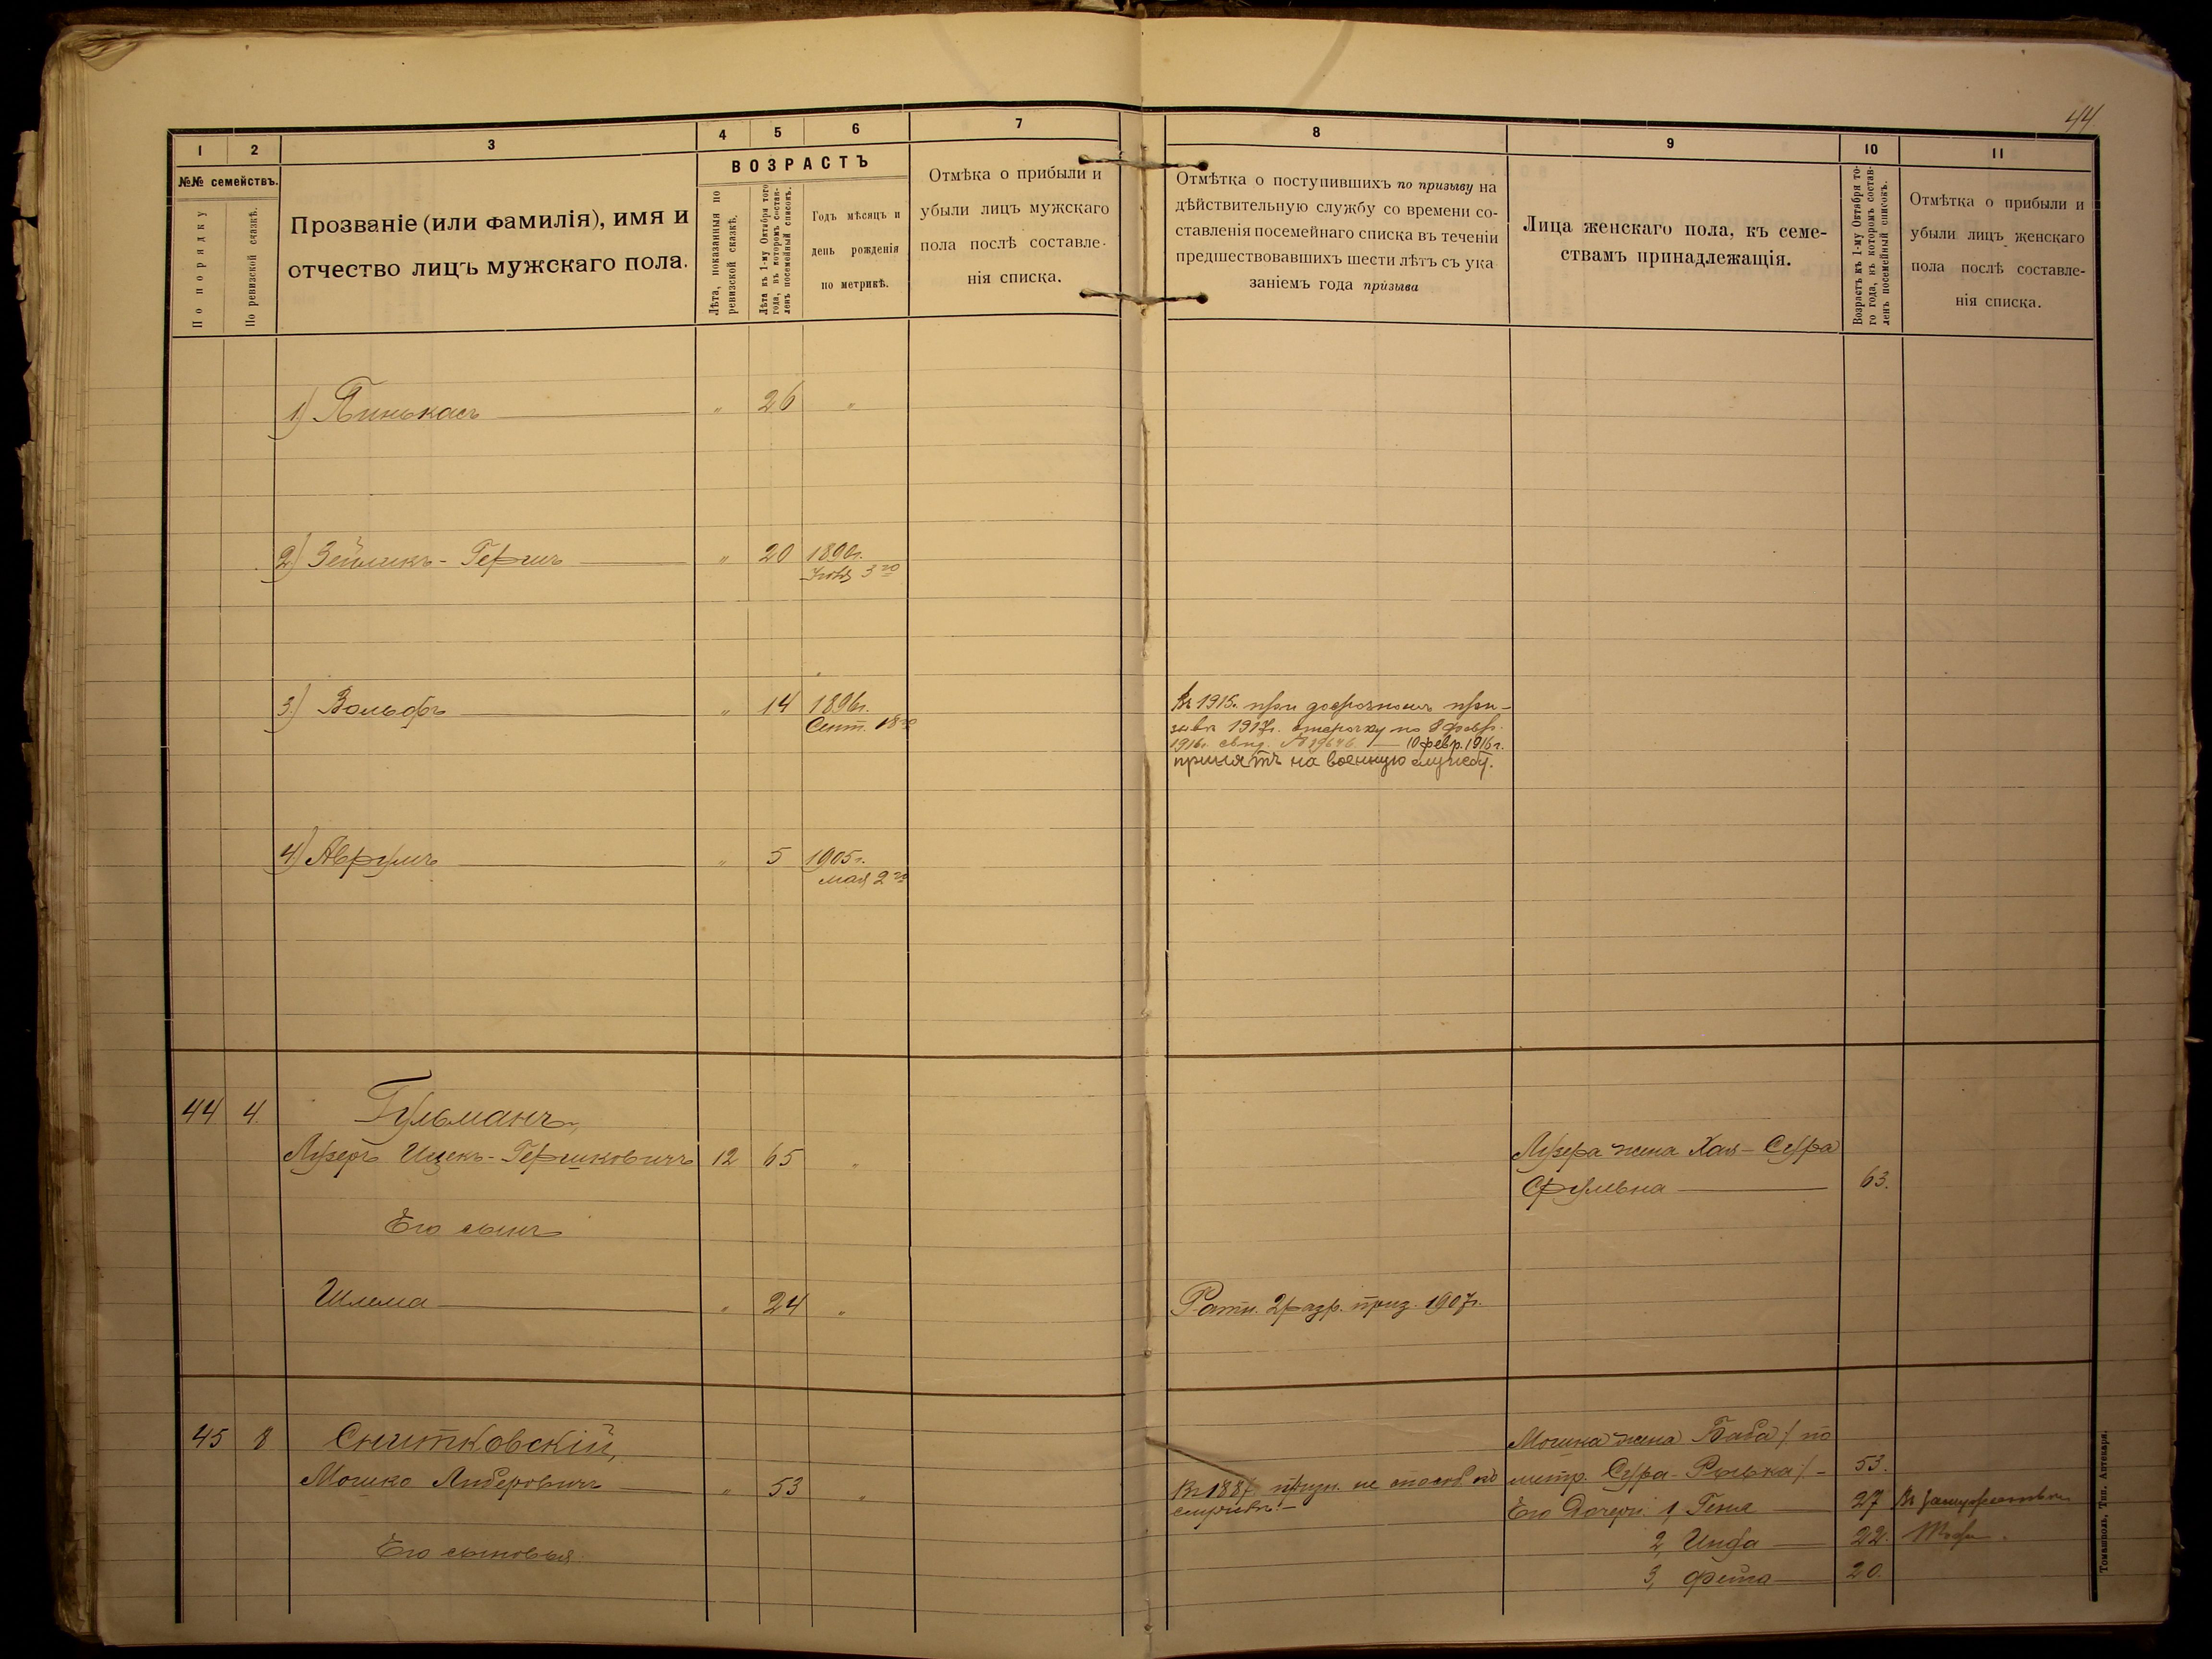 44
1 2 3 4 5 6 7 8 9 10 11
№№ семействъ.
По порядку
По ревизской сказкѣ.
Прозваніе (или фамилія), имя и
отчество лицъ мужскаго пола.
ВОЗРАСТЪ
Лѣта, показанныя по
ревизской сказкѣ.
Лѣта къ 1-му Октября того
года, въ которомъ состав-
ленъ посемейный списокъ.
Годъ мѣсяцъ и
день рожденія
по метрикѣ.
Отмѣка о прибыли и
убыли лицъ мужскаго
пола послѣ составле-
нія списка.
Отмѣтка о поступившихъ по призыву на
дѣйствительную службу со времени со-
ставленія посемейнаго списка въ теченіи
предшествовавшихъ шести лѣтъ съ ука
заніемъ года призыва
Лица женскаго пола, къ семе-
ствамъ принадлежащія.
Возрастъ къ 1-му Октября то-
го года, въ которомъ состав-
ленъ посемейный списокъ.
Отмѣтка о прибыли и
убыли лицъ женскаго
пола послѣ составле-
нія списка.
1) Пинькасъ — " 26 "
2) Зейликъ-Гершъ — " 20 1890г.
3го
3) Вольфъ — " 14 1896г.
Сент. 18го
Въ 1915г. при досрочномъ при-
зывѣ 1917г. отсрочку по 8 февр.
1916г. свид. № 29646 — 10 февр. 1916 г.
принятъ на военную службу.
4) Аврумъ — " 5 1905г.
мая 2го
44 4. Гульманъ,
Лузеръ Ицекъ-Гершковичъ 12 65 "
Лузера жена Хая-Сура
Срулевна — 63.
Его сынъ
Шлема — " 24 "
Ратн. 2 разр. приз. 1907г.
45 8 Снитковскій,
Мошко Лейберовичъ — " 53 "
Въ 1887г. призн. не способ. къ
службѣ. —
Мошка жена Баба /по
метр. Сура-Рывка/ — 53.
Его дочери: 1, Геня — 27 Въ замужествѣ
2, Инда — 22. Тоже.
3, Фейга — 20.
Его сыновья:
Томашполь, Тип. Аптекаря.